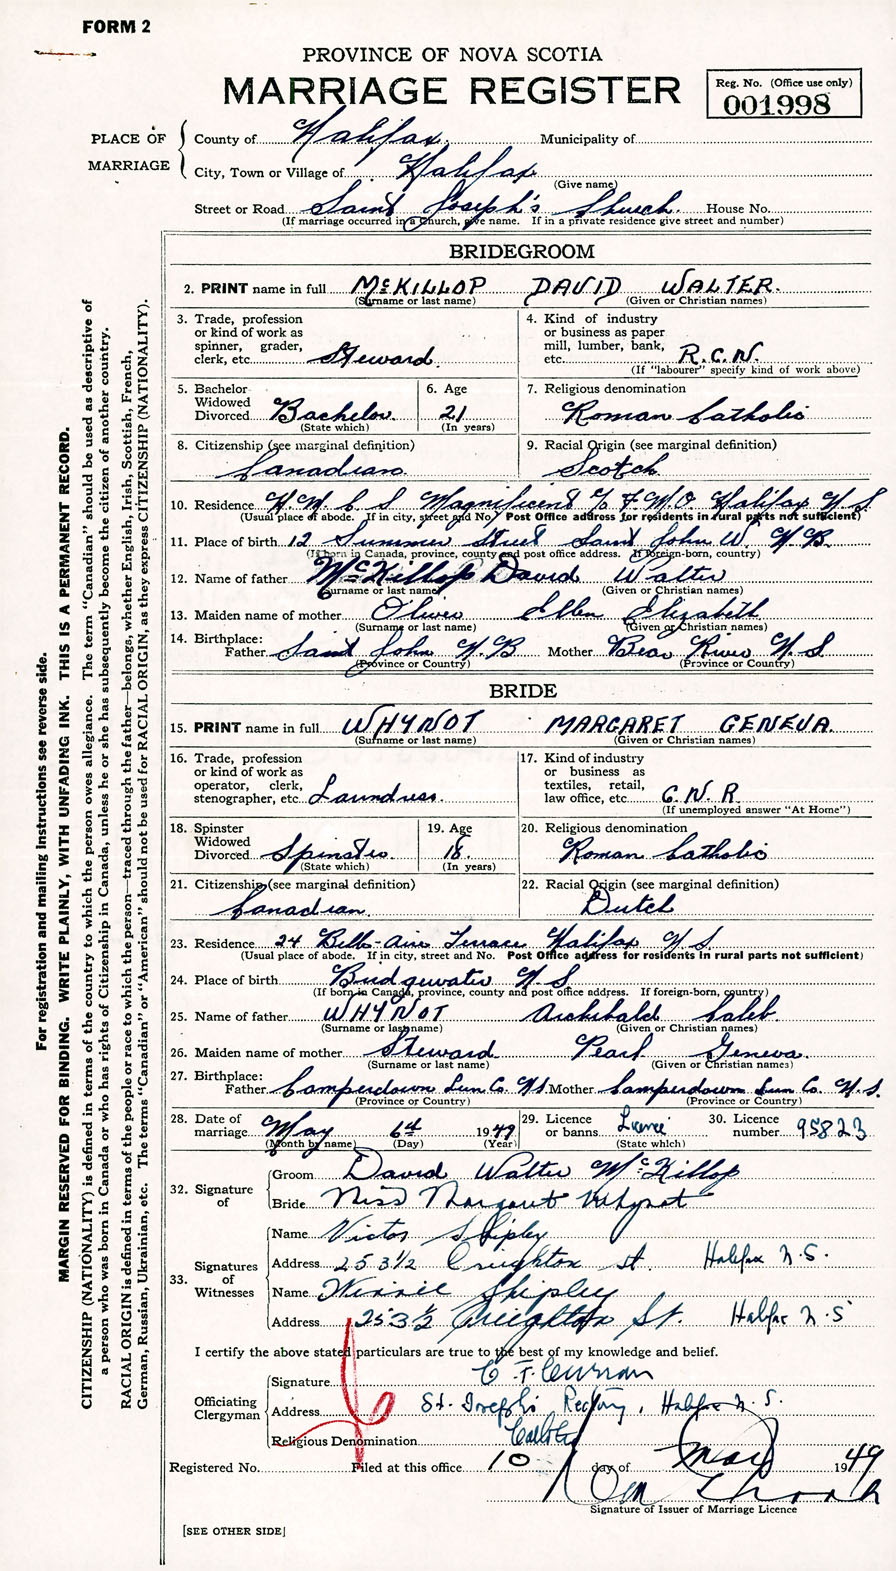 FORM 2
PROVINCE OF NOVA SCOTIA
MARRIAGE REGISTER
Reg. No. (Office use only)
001998
PLACE OF MARRIAGE
County of Halifax. Municipality of
City, Town or Village of Halifax
(Give name)
Street or Road Saint Joseph's Church. House No.
(If marriage occurred in a Church, give name. If in a private residence give street and number)
BRIDEGROOM
2. PRINT name in full McKILLOP DAVID WALTER.
(Surname or last name) (Given or Christian names)
3. Trade, profession or kind of work as spinner, grader, clerk, etc. Steward.
4. Kind of industry or business as paper mill, lumber, bank, etc. R.C.N.
(If "labourer" specify kind of work above)
5. Bachelor Widowed Divorced Bachelor.
(State which)
6. Age 21
(In years)
7. Religious denomination
Roman Catholic
8. Citizenship (see marginal definition)
Canadian.
9. Racial Origin (see marginal definition)
Scotch
10. Residence H M C S Magnificent c/o F.M.O. Halifax N.S.
(Usual place of abode. If in city, street and No. Post Office address for residents in rural parts not sufficient)
11. Place of birth 12 Summer Street Saint John W. N.B.
(If born in Canada, province, county and post office address. If foreign-born, country)
12. Name of father McKillop David Walter
(Surname or last name) (Given or Christian names)
13. Maiden name of mother Oliver Ellen Elizabeth
(Surname or last name) (Given or Christian names)
14. Birthplace:
Father Saint John N.B Mother Bear River N.S
(Province or Country) (Province or Country)
BRIDE
15. PRINT name in full WHYNOT MARGARET GENEVA.
(Surname or last name) (Given or Christian names)
16. Trade, profession or kind of work as operator, clerk, stenographer, etc. Laundress.
17. Kind of industry or business as textiles, retail, law office, etc. C.N.R
(If unemployed answer "At Home")
18. Spinster Widowed Divorced Spinster.
(State which)
19. Age 18.
(In years)
20. Religious denomination
Roman Catholic
21. Citizenship (see marginal definition)
Canadian.
22. Racial Origin (see marginal definition)
Dutch
23. Residence 24 Bell-Air Terrace Halifax N.S.
(Usual place of abode. If in city, street and No. Post Office address for residents in rural parts not sufficient)
24. Place of birth Bridgewater N.S
(If born in Canada, province, county and post office address. If foreign-born, country)
25. Name of father WHYNOT Archibald Caleb.
(Surname or last name) (Given or Christian names)
26. Maiden name of mother Steward Pearl Geneva.
(Surname or last name) (Given or Christian names)
27. Birthplace:
Father Camperdown Lun Co. N.S. Mother Camperdown Lun Co. N.S.
(Province or Country) (Province or Country)
28. Date of marriage May 6th 1949
(Month by name) (Day) (Year)
29. Licence or banns Licence
(State which)
30. Licence number 95823
32. Signature of
Groom David Walter McKillop
Bride Miss Margaret Whynot
33. Signatures of Witnesses
Name Victor Shipley
Address 253 1/2 Creighton st. Halifax N.S.
Name Winnie Shipley
Address 253 1/2 Creighton St. Halifax N.S
I certify the above stated particulars are true to the best of my knowledge and belief.
Officiating Clergyman
Signature C. F. Curran
Address St. Joseph's Rectory, Halifax N.S.
Religious Denomination Catholic
Registered No. Filed at this office 10 day of May 1949
Signature of Issuer of Marriage Licence
[SEE OTHER SIDE]
For registration and mailing Instructions see reverse side.
MARGIN RESERVED FOR BINDING. WRITE PLAINLY, WITH UNFADING INK. THIS IS A PERMANENT RECORD.
CITIZENSHIP (NATIONALITY) is defined in terms of the country to which the person owes allegiance. The term "Canadian" should be used as descriptive of
a person who was born in Canada or who has rights of Citizenship in Canada, unless he or she has subsequently become the citizen of another country.
RACIAL ORIGIN is defined in terms of the people or race to which the person—traced through the father—belongs, whether English, Irish, Scottish, French,
German, Russian, Ukrainian, etc. The terms "Canadian" or "American" should not be used for RACIAL ORIGIN, as they express CITIZENSHIP (NATIONALITY).